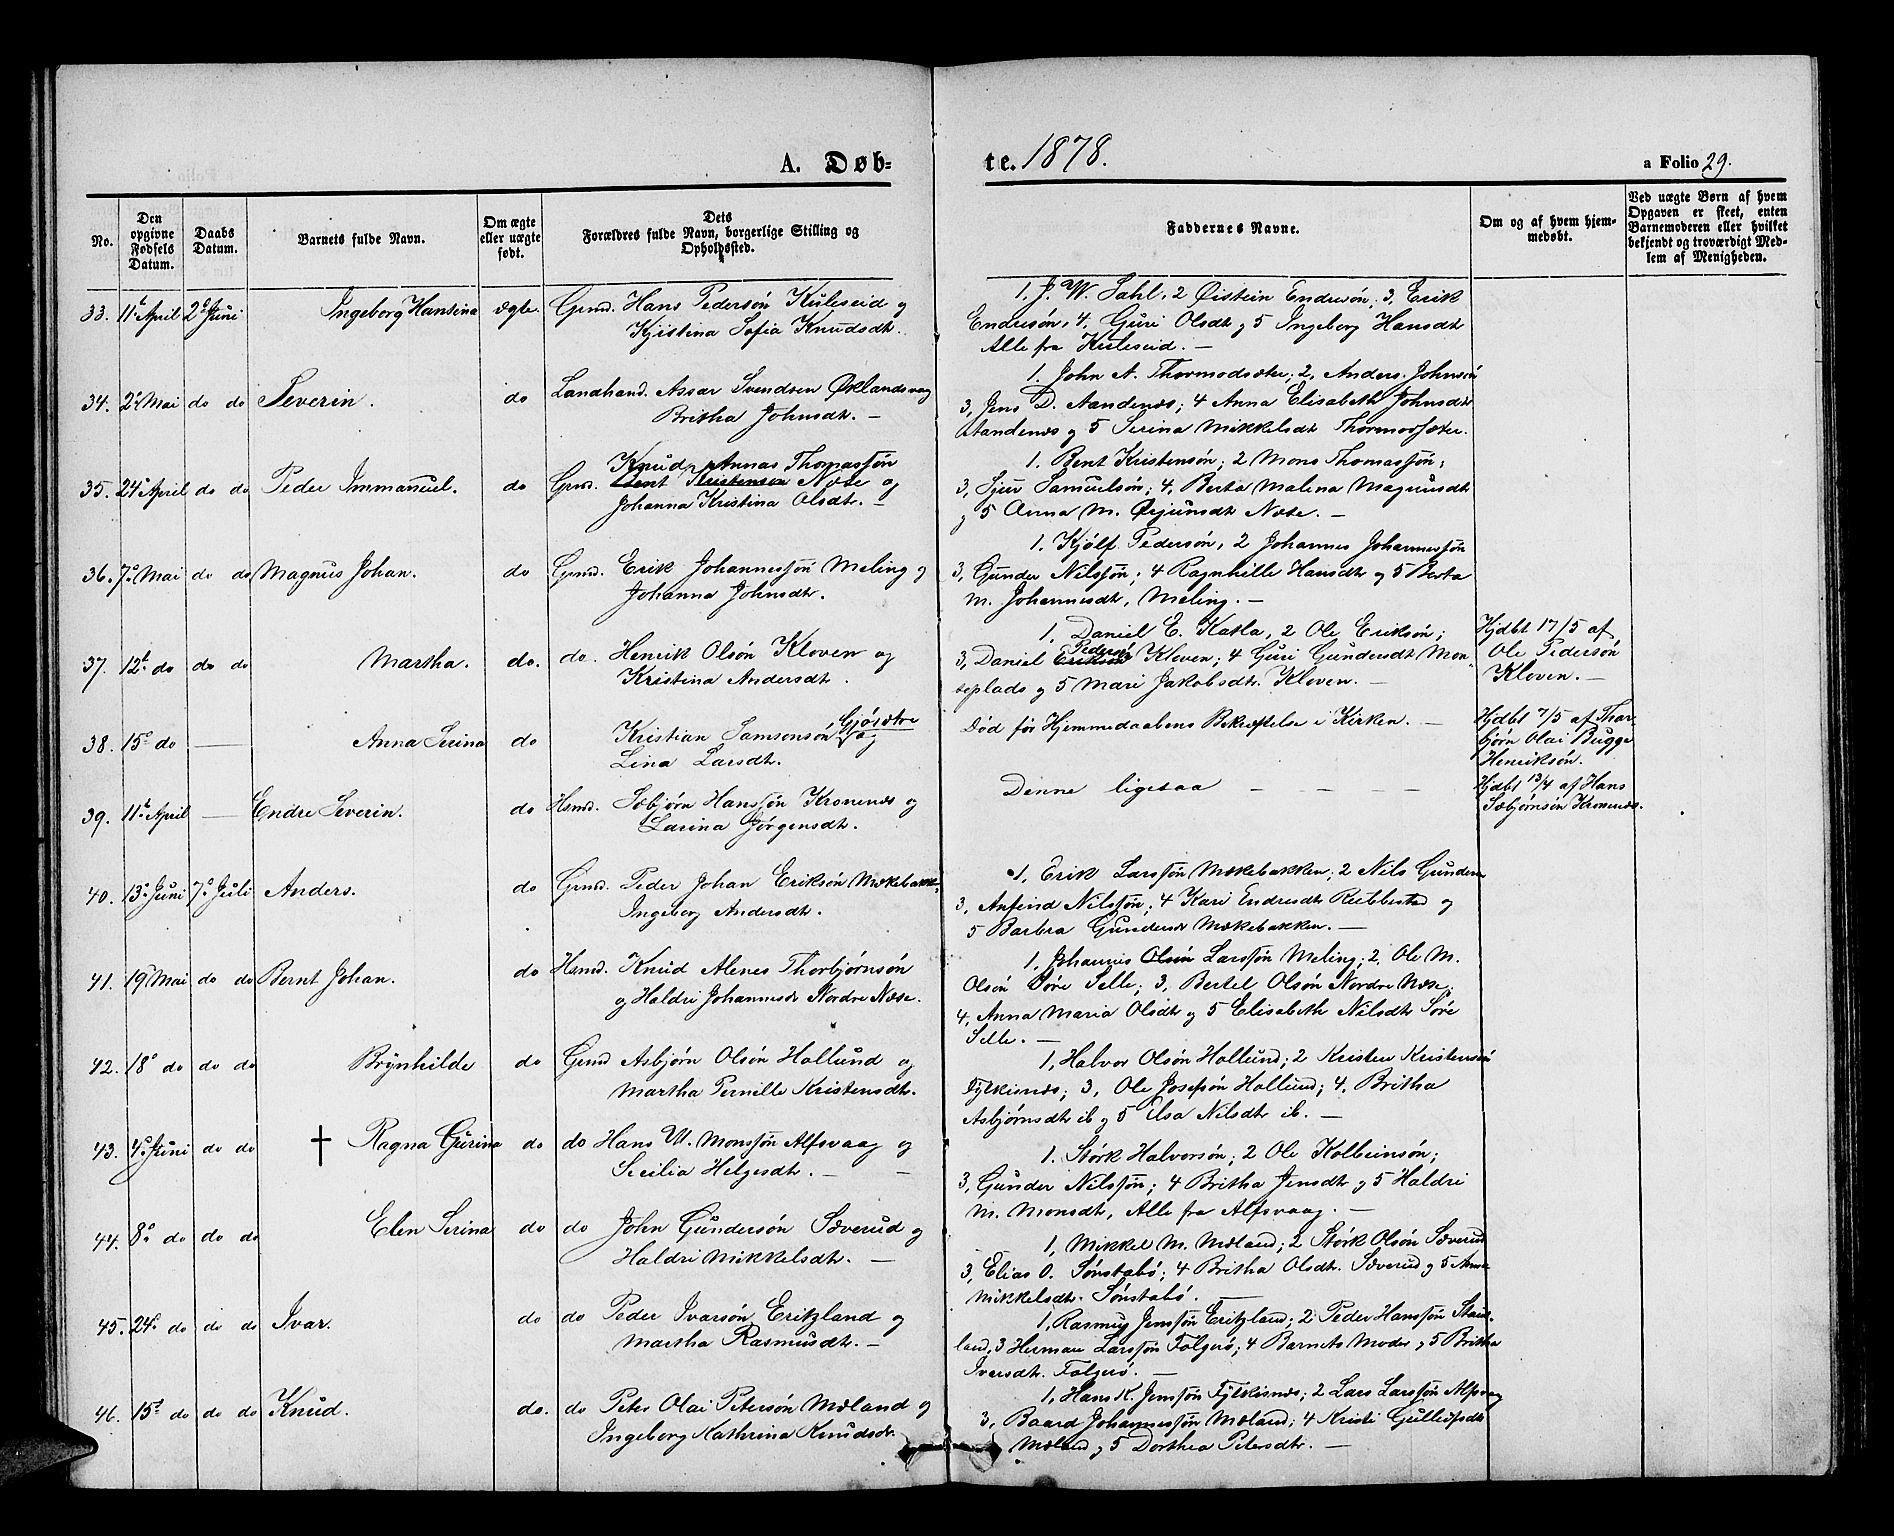 A. Døb-
te. 1878.
a Folio 29.
No.
Den opgivne Fødsels Datum.
Daabs Datum.
Barnets fulde Navn.
Om ægte eller uægte født.
Dets Forældres fulde Navn, borgerlige Stilling og Opholdssted.
Faddernes Navne.
Om og af hvem hjemmedøbt.
Ved uægte Børn af hvem Opgaven er skeet, enten Barnemoderen eller hvilket bekjendt og troværdigt Medlem af Menigheden.
33. 11te April 2d Juni Ingeborg Hansina ægte. Grmd. Hans Pedersön Kuleseid og
Kjistina Sofia Knudsdt.
1, J. W. Sahl, 2 Öistein Endresön; 3, Erik
Endresön, 4, Guri Olsdt og 5 Ingeborg Hansdt
Alle fra Kuleseid. —
34. 2d Mai do do Severin. do Landhand. Assar Svendsen Øklandsvag
Britha Johnsdt. —
1. John A. Thormodsæter; 2, Anders Johnsön
3, Jens D. Aandenæs; 4 Anna Elisabeth Johnsdt
Aandenæs og 5 Serina Mikkelsdt Thormodsæter.
35. 24de April do do Peder Immanuel. do Grmd. Knud Annas Thomassön
Bent Kristensen Næse og
Johanna Kristina Olsdt. —
1. Bent Kristensön; 2 Mons Thomassön;
3, Sjur Samuelsön; 4, Berta Malena Magnusdt
og 5 Anna M. Örjunsdt Næse. —
36. 7de Mai do do Magnus Johan. do Grmd. Erik Johannessön Meling og
Johanna Johnsdt.
1. Kjölf Pedersön, 2 Johannes Johannessön
3, Gunder Nilssön; 4 Ragnhille Hansdt og 5 Berta
M. Johannesdt, Meling. —
37. 12te do do do Martha. do. do. Henrik Olsön Kloven og
Kristina Andersdt.
1, Daniel E. Katla, 2 Ole Eriksön;
3, Daniel Eriksön Pedersö Kloven; 4 Guri Gundersdt Mon-
seplads og 5 Mari Jakobsdt. Kloven. —
Hjdbt 17/5 af
Ole Pedersön
Kloven. —
38. 15de do — Anna Serina do Kristian Samsonsön Gjösætre og
Lina Larsdt.
Död för Hjemmedaabens Bekræftelse i Kirken. —
Hjdbt 7/5 af Thor-
björn Olai Bugge
Henriksön.
39. 11te April — Endre Severin. do Hsmd. Sæbjörn Hanssön Kronenæs og
Larina Jörgensdt.
Denne ligesaa — — — —
Hjdbt 13/4 af Hans
Sæbjörnsön Kronenæs.
40. 13de Juni 7de Juli Anders. do Grmd. Peder Johan Eriksön Mækebakke
Ingeborg Andersdt.
1, Erik Larssön Mækebakken; 2 Nils Gunders
3, Anfind Nilssön; 4 Kari Endresdt Rubbestad og
5 Barbra Gundersdt Mækebakken. —
41. 19de Mai do do Bernt Johan. do Hsmd. Knud Alenes Thorbjörnsön
og Haldri Johannesdt Nordre Næse.
1, Johannes Olsön Larssön Meling; 2, Ole M.
Olsön Söre Selle; 3, Bertel Olsön Nordre Næse;
4, Anna Maria Olsdt og 5 Elisabeth Nilsdt Söre
Selle. —
42. 18de do do do Brynhilde do Grmd Asbjörn Olsön Hollund og
Martha Pernille Kristensdt.
1, Halvor Olsön Hollund; 2 Kristen Kristensön
Fylkisnæs; 3, Ole Josefsön Hollund; 4. Britha
Asbjörnsdt ib og 5 Elsa Nilsdt ib. —
43. 4de Juni do do † Ragna Gurina do do Hans W. Monssön Alfsvaag og
Secilia Helgesdt. — —
1. Störk Halvorsön; 2 Ole Kolbeinsön;
3, Gunder Nilssön; 4 Britha Jensdt og 5 Haldri
M. Monsdt, Alle fra Alfsvaag. —
44. 8de do do do Elen Serina do do John Gundersön Sæverud og
Haldri Mikkelsdt. —
1, Mikkel M. Mæland; 2 Störk Olsön Sæverud
3, Elias O. Sönstabö; 4 Britha Olsdt. Sæverud og 5 Anna
Mikkelsdt. Sönstabö.
45. 24de do do do Ivar. do do Peder Ivarsön Eritzland og
Martha Rasmusdt. —
1, Rasmus Jenssön Eritzland; 2 Peder Hanssön Stand-
land, 3 Herman Larssön Folgerö; 4 Barnets Moder og 5 Britha
Iversdt. Folgerö. —
46. 15de do do do Knud. do. do Peter Olai Petersön Mæland og
Ingeborg Kathrina Knudsdt.
1, Hans K. Jenssön Fylkisnæs; 2 Lars Larssön Alfsvag
3, Baard Johannessön Mæland; 4 Kristi Gullufsdt
Mæland og 5 Dorthea Petersdt. —